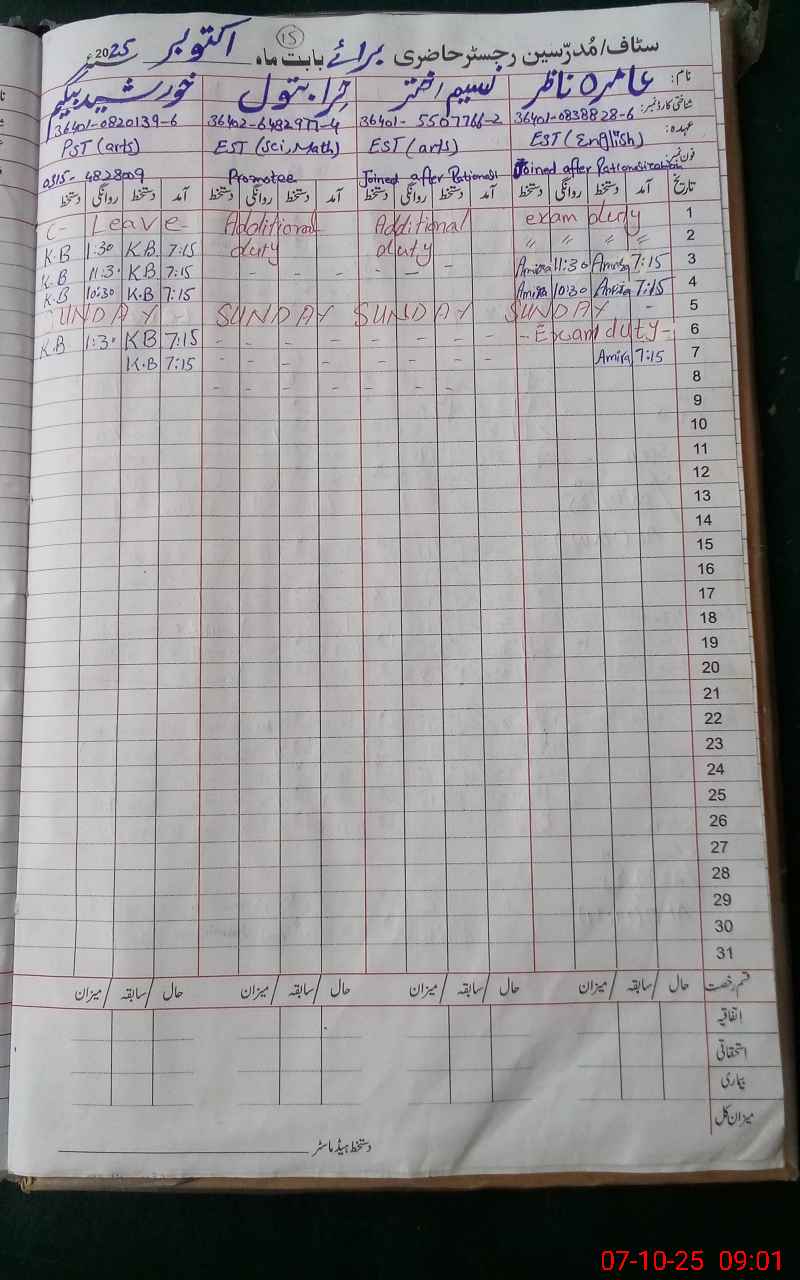 (15)
سٹاف/مُدرّسین رجسٹر حاضری برائے بابت ماہ اکتوبر 2025ء
نام: عامرہ ناظر نسیم اختر حرا بتول خورشید بیگم
شناختی کارڈ نمبر: 36401-0838828-6 36401-5507766-2 36402-6482977-4 36401-0820139-6
عہدہ: EST (English) EST (arts) EST (Sci, Math) PST (arts)
فون نمبر: Joined after Rationalization Joined after Rationali Promotee 0315-4828009
تاریخ آمد دستخط روانگی دستخط آمد دستخط روانگی دستخط آمد دستخط روانگی دستخط آمد دستخط روانگی دستخط
C- Leave - Additional Additional exam duty 1
K.B 1:30 K.B. 7:15 duty duty " " " " 2
K.B 11:30 K.B. 7:15 - - - - - - - Amira 11:30 Amira 7:15 3
K.B 10:30 K.B 7:15 Amira 10:30 Amira 7:15 4
SUNDAY - SUNDAY SUNDAY SUNDAY - 5
K.B 1:30 KB 7:15 - - - - - - - - Exam duty - 6
K.B 7:15 - - - - - - - Amira 7:15 7
- - - - - - - 8
9
10
11
12
13
14
15
16
17
18
19
20
21
22
23
24
25
26
27
28
29
30
31
قسم رخصت حال / سابقہ / میزان حال / سابقہ / میزان حال / سابقہ / میزان حال / سابقہ / میزان
اتفاقیہ
استحقاقی
بیماری
میزان کل
دستخط ہیڈ ماسٹر
07-10-25 09:01